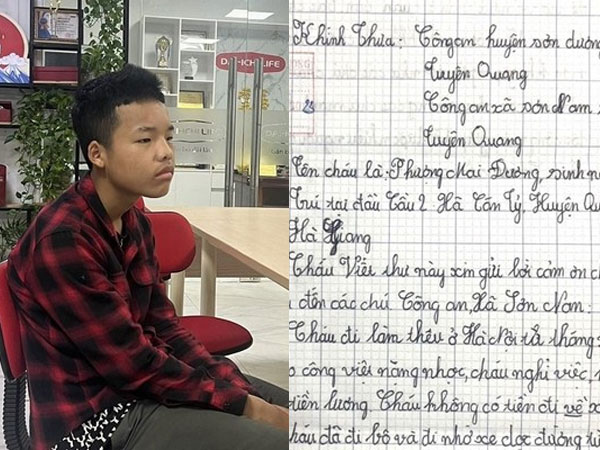 DAI-ICHI LIFE
Khinh Thưa: Công an huyện sơn dương
Tuyên Quang
Công an xã sơn Nam
Tuyên Quang
Tên cháu là Phượng Mai Dường, sinh n
Trú tại đầu Cầu 2 Hà Cán Tỷ, Huyện Qu
Hà Giang
Cháu Viết thư này xin gửi lời cảm ơn ch
đến các chú Công an, Xã Sơn Nam.
Cháu đi làm thêu ở Hà Nội từ tháng
công việt nặng nhọc, cháu nghỉ việc,
tiền lương. Cháu không có tiền đi về x
háu đã đi bộ và đi nhờ xe dọc đường từ